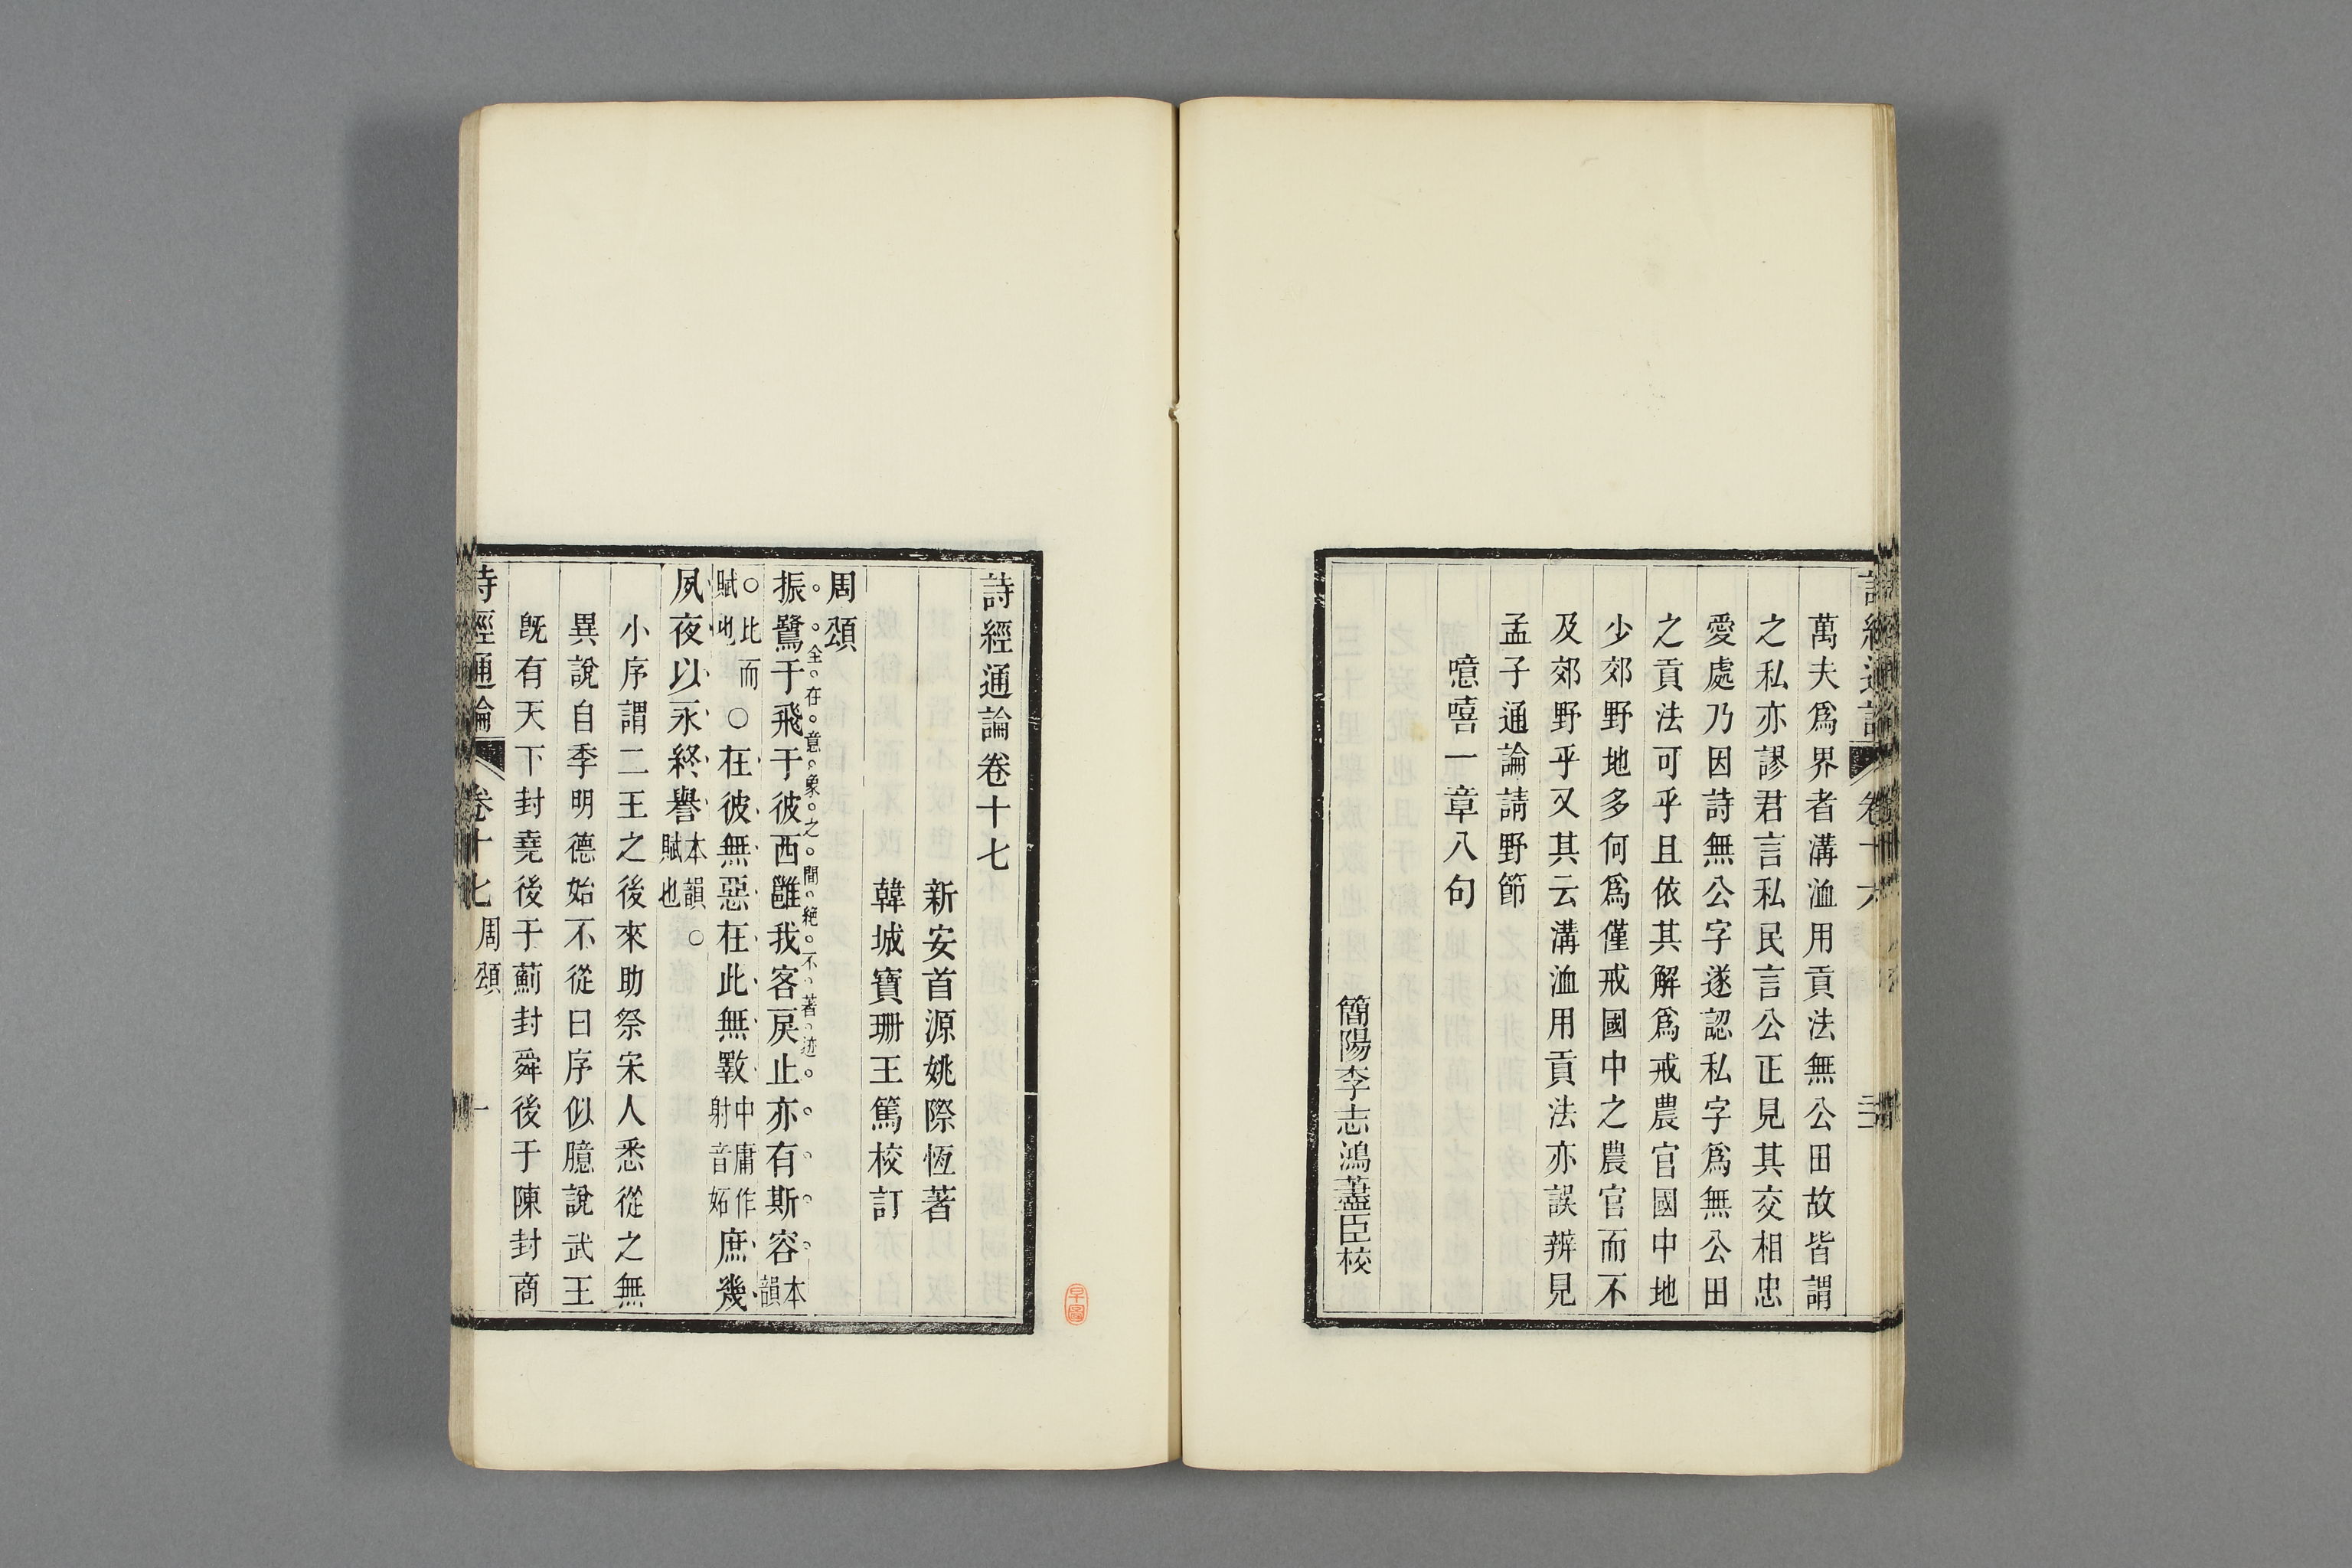 萬夫爲界者溝洫用貢法無公田故皆謂
之私亦謬君言私民言公正見其交相忠
愛處乃因詩無公字遂認私字爲無公田
之貢法可乎且依其解爲戒農官國中地
少郊野地多何爲僅戒國中之農官而不
及郊野乎又其云溝洫用貢法亦誤辨見
孟子通論請野節
噫嘻一章八句
簡陽李志鴻藎臣校
詩經通論卷十七
新安首源姚際恆著
韓城寶珊王篤校訂
周頌
振鷺于飛于彼西雝我客戾止亦有斯容本韻
全在意象之間絶不著迹
○比而賦也○在彼無惡在此無斁中庸作射音妬庶幾
夙夜以永終譽本韻○賦也
小序謂二王之後來助祭宋人悉從之無
異說自季明德始不從曰序似臆說武王
旣有天下封堯後于薊封舜後于陳封商
詩經通論 卷十七 周頌 一